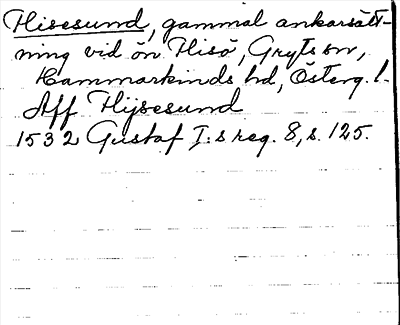 Hisesund, gammal ankarsätt-
ning vid ön Hisö, Gryts sn,
Hammarkinds hd, Österg. l.
Aff Hijsesund
1532 Gustaf I:s reg. 8, s. 125.